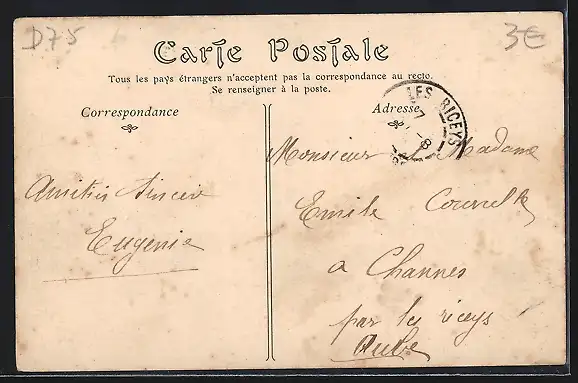 D75
3€
Carte Postale
Tous les pays étrangers n'acceptent pas la correspondance au recto.
Se renseigner à la poste.
Correspondance
Adresse
LES RICEYS
7 - 8
Monsieur & Madame
Amitiés Sincère
Emile
Eugenie
a Channes
par les riceys
Aube